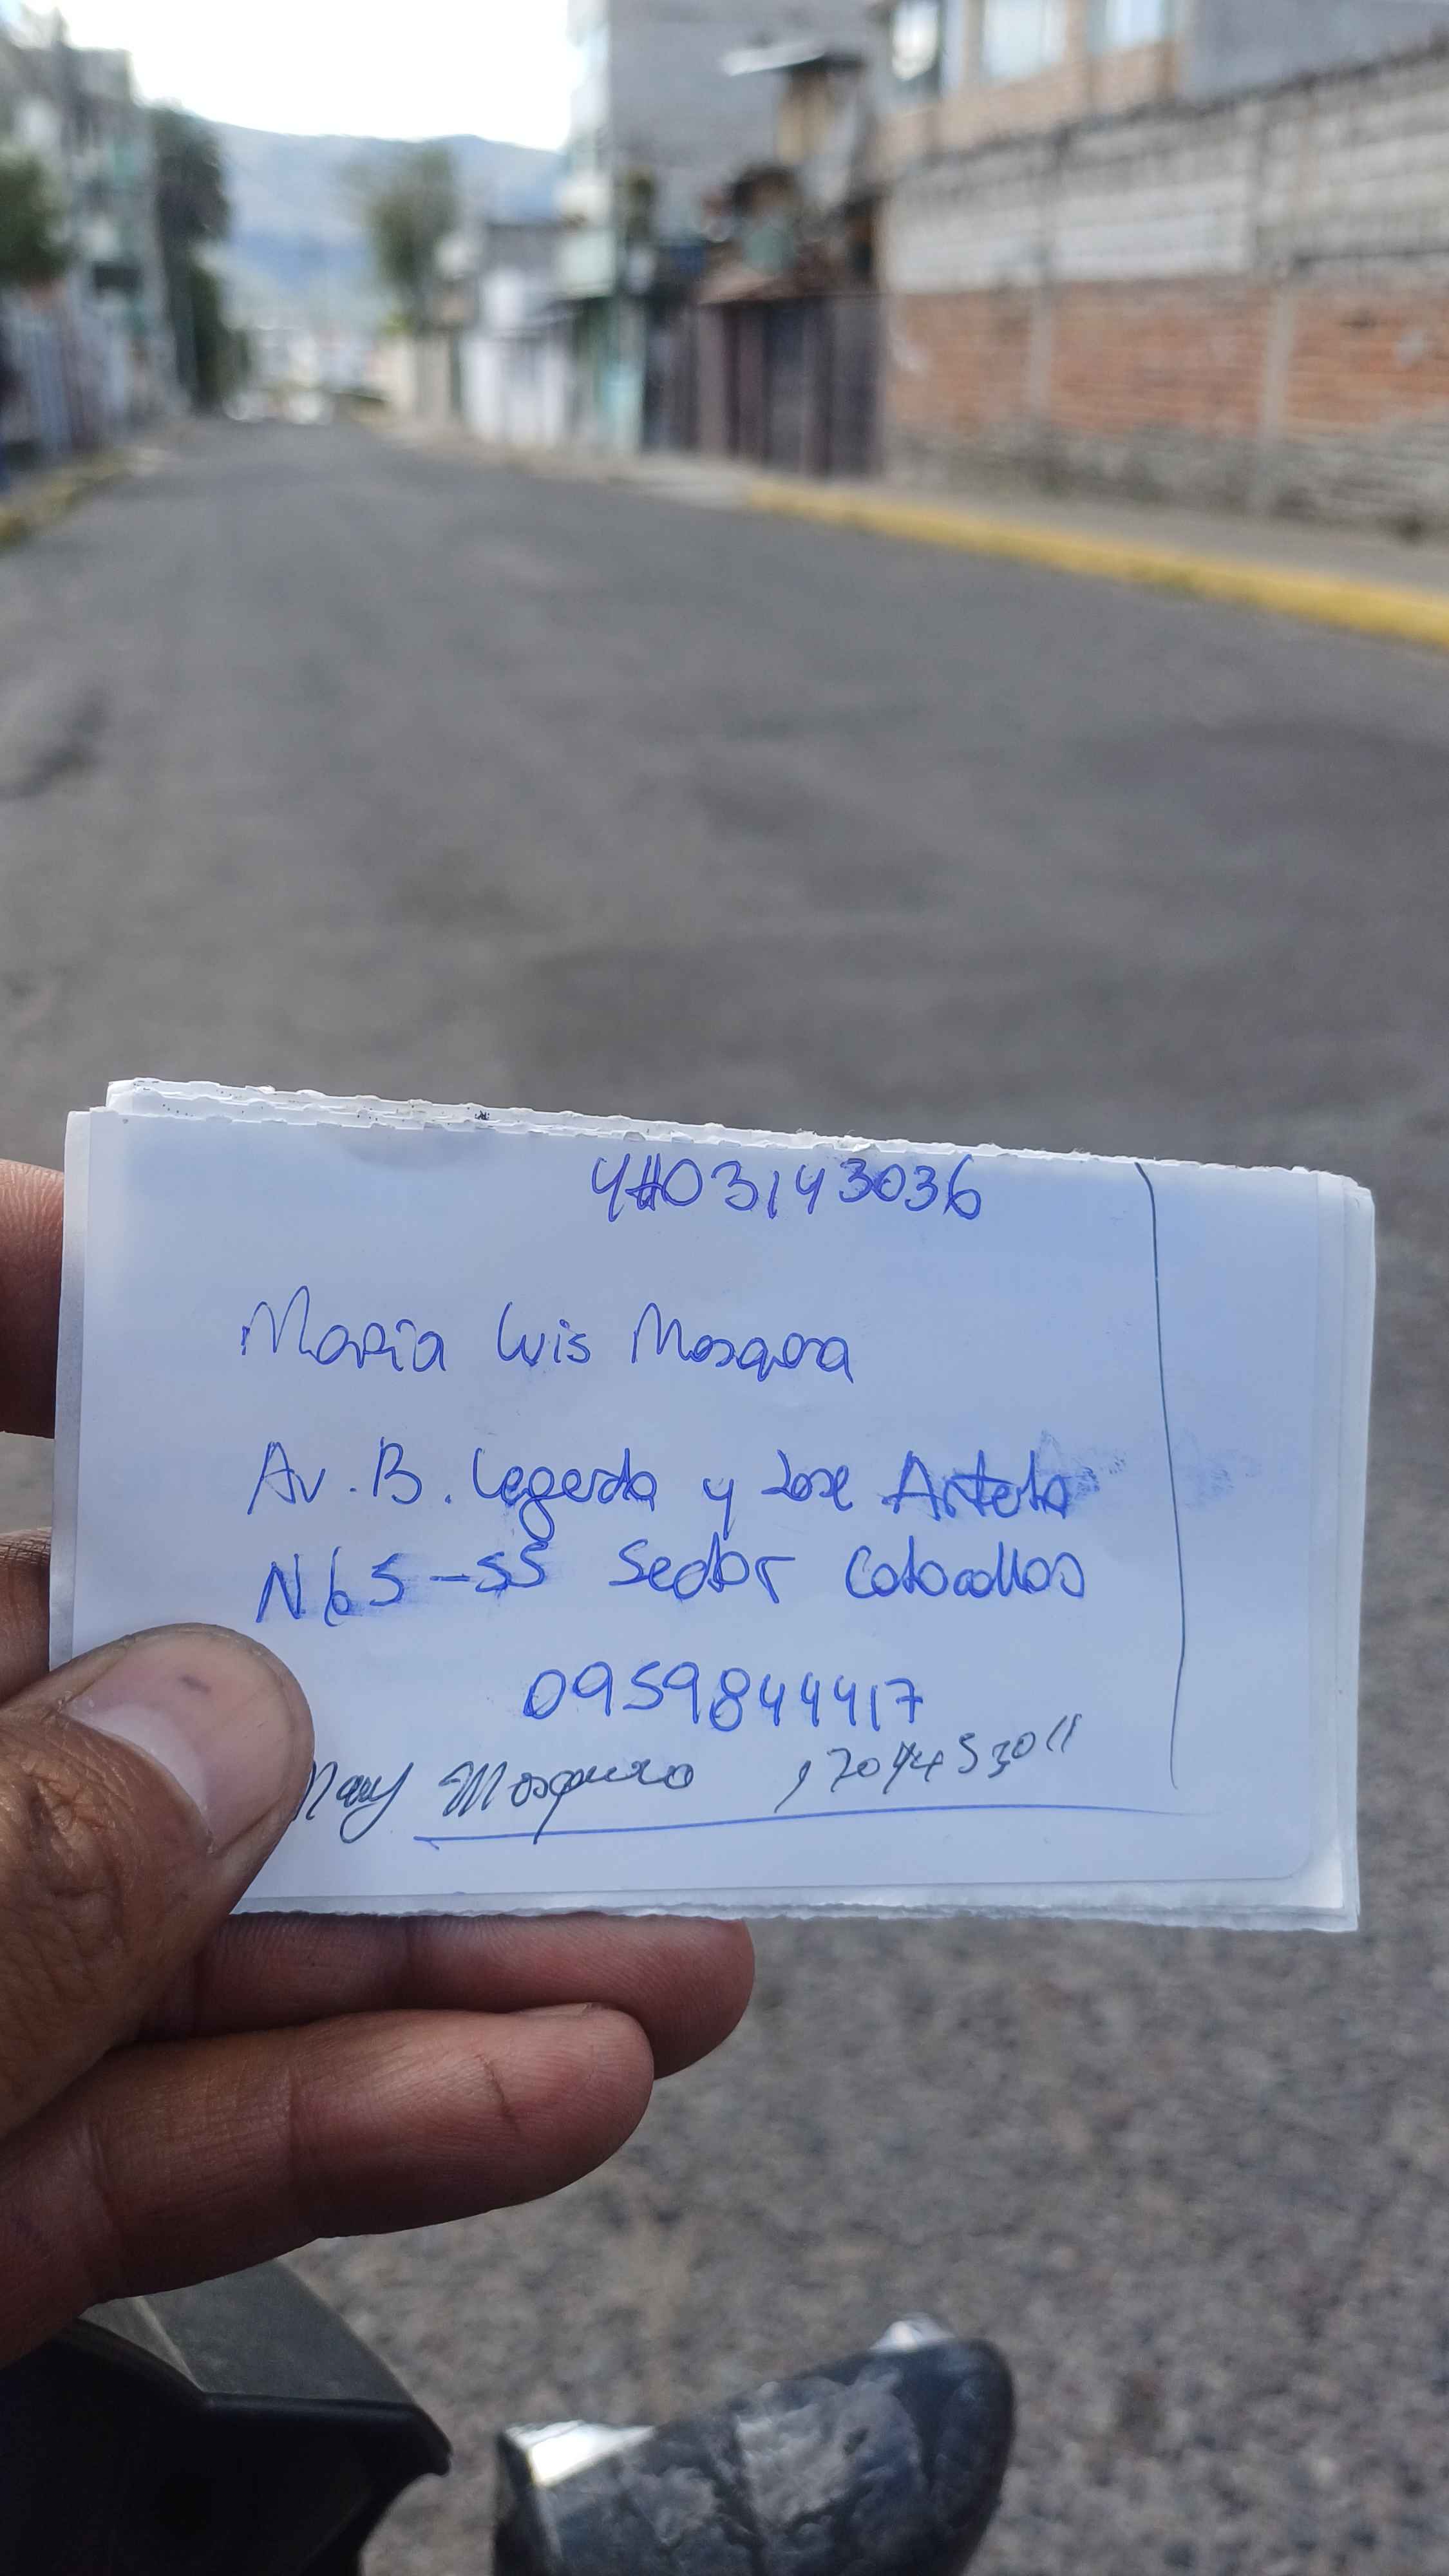 4403143036
Maria Luis Mosqera
Av. B. Legarda y Jose Arteta
N65-55 Sector Cotocollao
0959844417
Mary Mosquera 1704453011